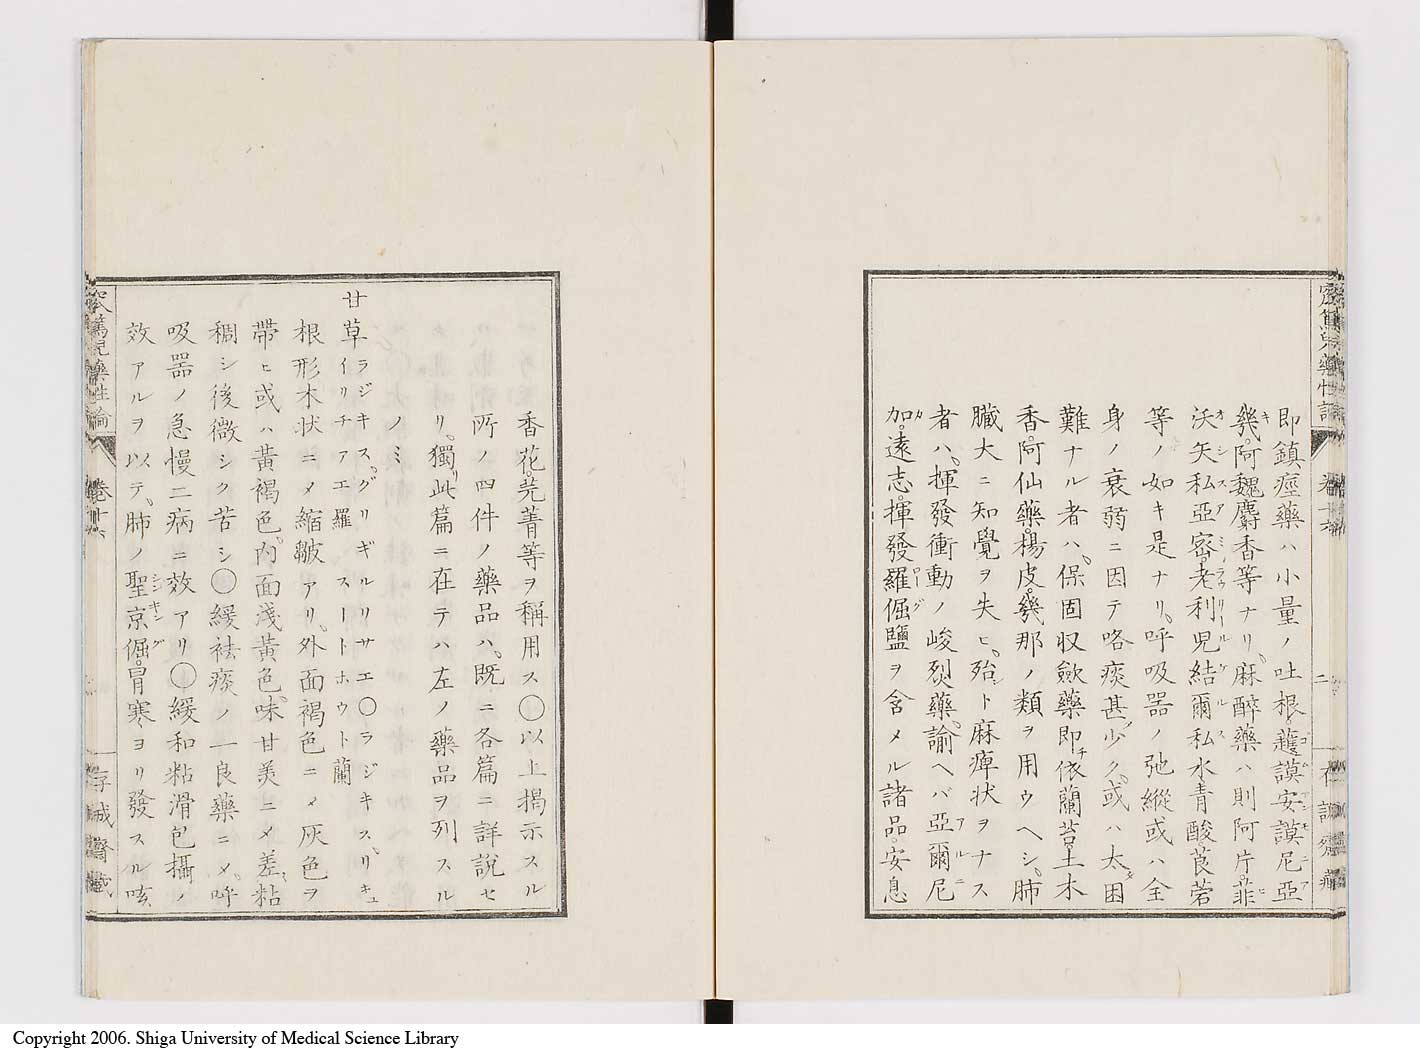 即鎮痙藥ハ小量ノ吐根、護謨安謨尼亞
幾。阿魏麝香等ナリ。麻醉藥ハ則阿片。菲
沃斯私亞密。老利兒結爾私水青酸。莨菪
等ノ如キ是ナリ。呼吸器ノ弛縱或ハ全
身ノ衰弱ニ因テ咯痰甚少ク。或ハ太困
難ナル者ハ。保固収斂藥即依蘭苔。土木
香。阿仙藥。楊皮。幾那ノ類ヲ用ウヘシ。肺
臓大ニ知覺ヲ失ヒ。殆ト麻痺状ヲナス
者ハ。揮發衝動ノ峻烈藥。諭ヘバ亞爾尼
加。遠志。揮發羅倔鹽ヲ含メル諸品。安息
香花。芫菁等ヲ稱用ス〇以上揭示スル
所ノ四件ノ藥品ハ。既ニ各篇ニ詳説セ
リ。獨此篇ニ在テハ左ノ藥品ヲ列スル
ノミ
甘草 ラジキス。グリギルリサエ〇ラジキス。リキュ
イリチアエ羅 スートホウト蘭
根形木状ニメ縮皺アリ。外面褐色ニメ灰色ヲ
帶ヒ或ハ黄褐色。內面淺黃色。味甘美ニメ差粘
稠シ後微シク苦シ〇緩祛痰ノ一良藥ニメ。呼
吸器ノ急慢二病ニ效アリ〇緩和粘滑包攝ノ
效アルヲ以テ。肺ノ聖京倔。冒寒ヨリ發スル咳
藥性論
卷十六
二